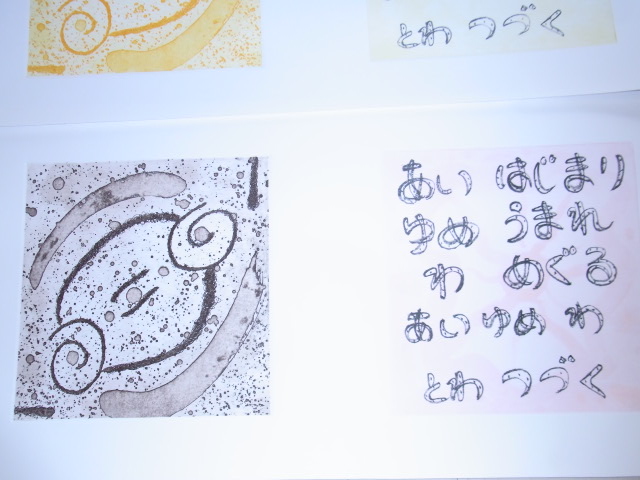 とわ つづく
あい はじまり
ゆめ うまれ
わ めぐる
あい ゆめ わ
とわ つづく